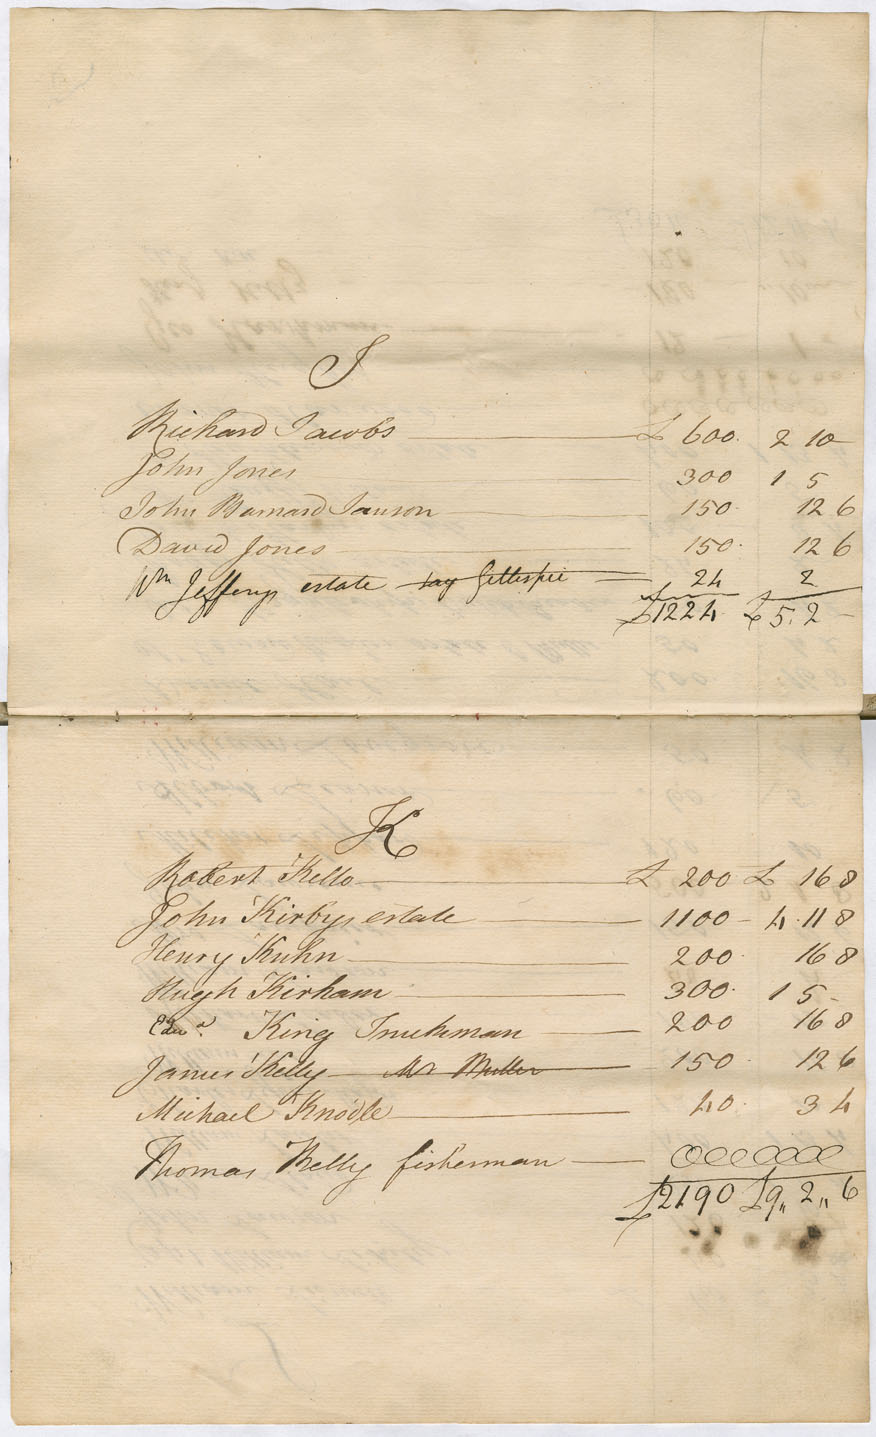 J
Richard Jacobs £ 600. 2 10 -
John Jones 300 1 5
John Barnard Janson 150. 12 6
David Jones 150. 12 6
Wm Jefferys estate tay Gillespie 24 2
£1224 £5. 2 -
K
Robert Kello £ 200 £ 16 8
John Kirbys estate 1100 - 4. 11 8
Henry Kuhn 200 16 8
Hugh Kirham 300. 1 5 -
Edwd. King 200 16 8
James Kelly Mr Muller 150 12 6
Michael Knodle 40. 3 4
Thomas Kelly fisherman
£2190 £9,, 2,, 6